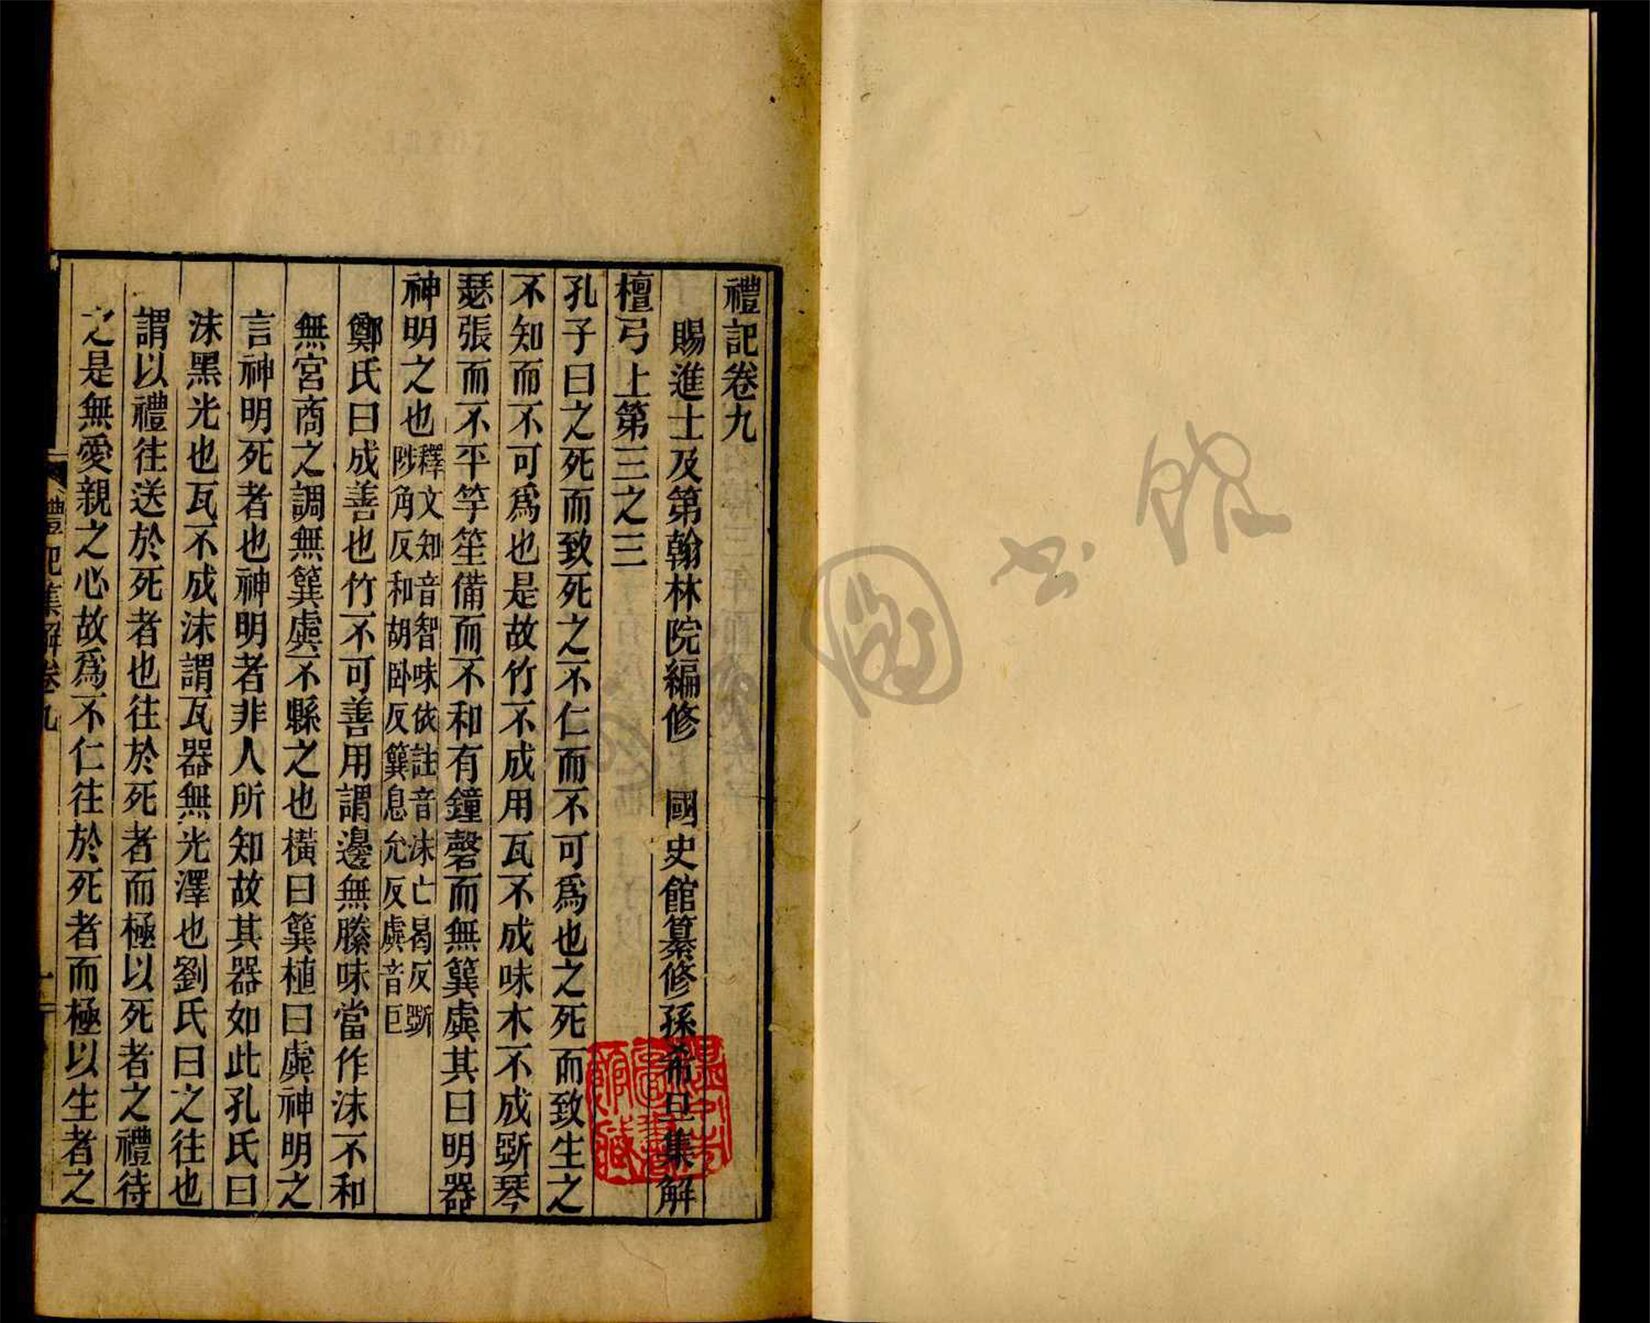 禮記卷九
賜進士及第翰林院編修　國史館纂修孫希旦集解
檀弓上第三之三
孔子曰之死而致死之不仁而不可爲也之死而致生之
不知而不可爲也是故竹不成用瓦不成味木不成斲琴
瑟張而不平竽笙備而不和有鐘磬而無簨虡其曰明器
神明之也
釋文知音智味依註音沬亡曷反斲
陟角反和胡卧反簨息允反虡音巨
鄭氏曰成善也竹不可善用謂邊無縢味當作沬不和
無宮商之調無簨虡不縣之也橫曰簨植曰虡神明之
言神明死者也神明者非人所知故其器如此孔氏曰
沬黑光也瓦不成沬謂瓦器無光澤也劉氏曰之往也
謂以禮往送於死者也往於死者而極以死者之禮待
之是無愛親之心故爲不仁往於死者而極以生者之
禮記集解卷九
書
館